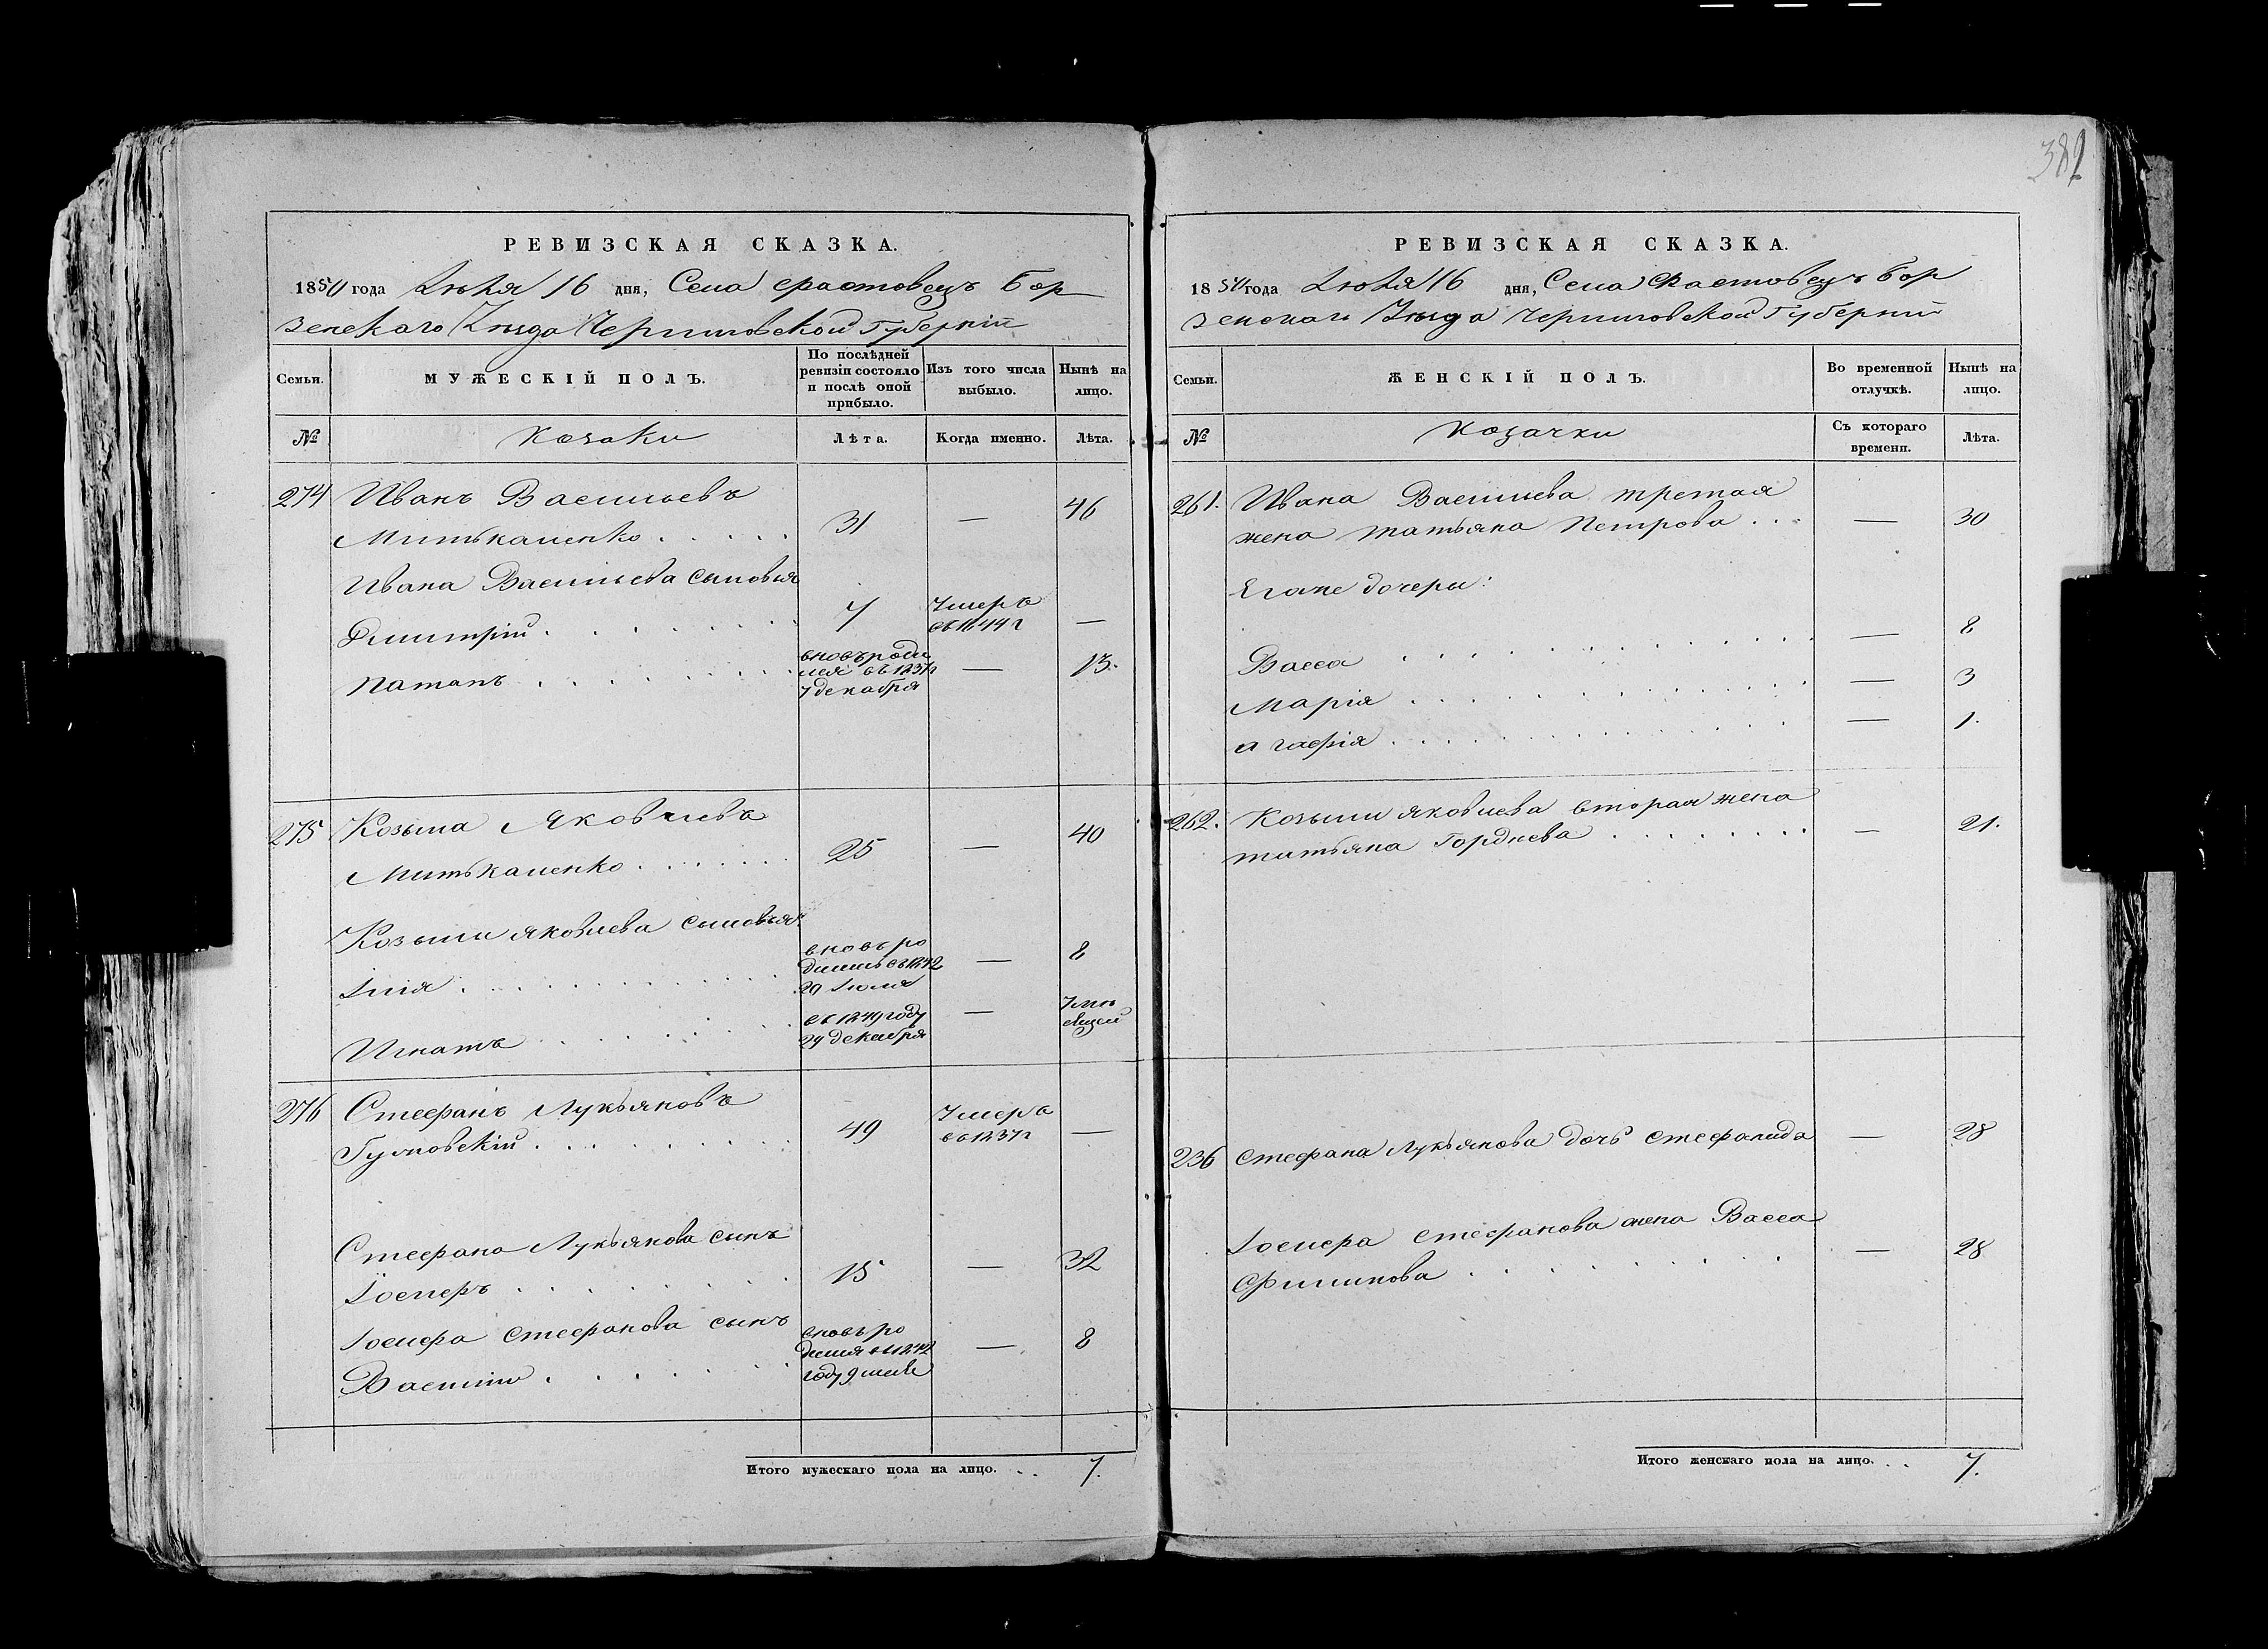 381
РЕВИЗСКАЯ СКАЗКА.
1850 года Іюля 16 дня, Села Фастовецъ Бор
зенскаго Уѣзда Черниговской Губерніи
Семьи.
МУЖЕСКІЙ ПОЛЪ.
По послѣдней ревизіи состояло и послѣ оной прибыло.
Изъ того числа выбыло.
Нынѣ на лицо.
№
Козаки
Лѣта.
Когда именно.
Лѣта.
274 Иванъ Васильевъ
Митькаленко . . . . . 31 — 46
Ивана Васильева сыновья
Дмитрій . . . . . . . 7 Умеръ въ 1844 г —
Патапъ . . . . . . . вновь роди
лся въ 1837 г — 13.
7 декабря
275 Козьма Яковлевъ
Митькаленко . . . . . . 25 — 40
Козьмы Яковлева сыновья:
Илія . . . . . . . . вновь ро
дился въ 1842 — 8
20 Іюля
Игнатъ . . . . . . въ 1849 году —
29 декабря
276 Стефанъ Лукьяновъ
Гулковскій . . . . . . . . 49 Умеръ въ 1837 г —
Стефана Лукьянова сынъ
Іосифъ . . . . . . . 15 — 32
Іосифа Стефанова сынъ вновь ро
дился въ 1842 — 8
Василій . . . . . . году
Итого мужескаго пола на лицо. . . 7.
РЕВИЗСКАЯ СКАЗКА.
1850 года Іюля 16 дня, Села Фастовецъ Бор
зенскаго Уѣзда Черниговской Губерніи
Семьи.
ЖЕНСКІЙ ПОЛЪ.
Во временной отлучкѣ.
Нынѣ на лицо.
№
Козачки
Съ котораго времени.
Лѣта.
261. Ивана Васильева третая
жена Татьяна Петрова . . . — 30
Егоже дочери:
Васса . . . . . . . . . — 8
Марія . . . . . . . . . — 3
Агафія . . . . . . . . . — 1.
262. Козьмы Яковлева вторая жена
Татьяна Гордѣева . . . . . . . . — 21.
236 Стефана Лукьянова дочь Стефанида — 28
Іосифа Стефанова жена Васса
Филипова . . . . . . . . — 28
Итого женскаго пола на лицо. . . 7.